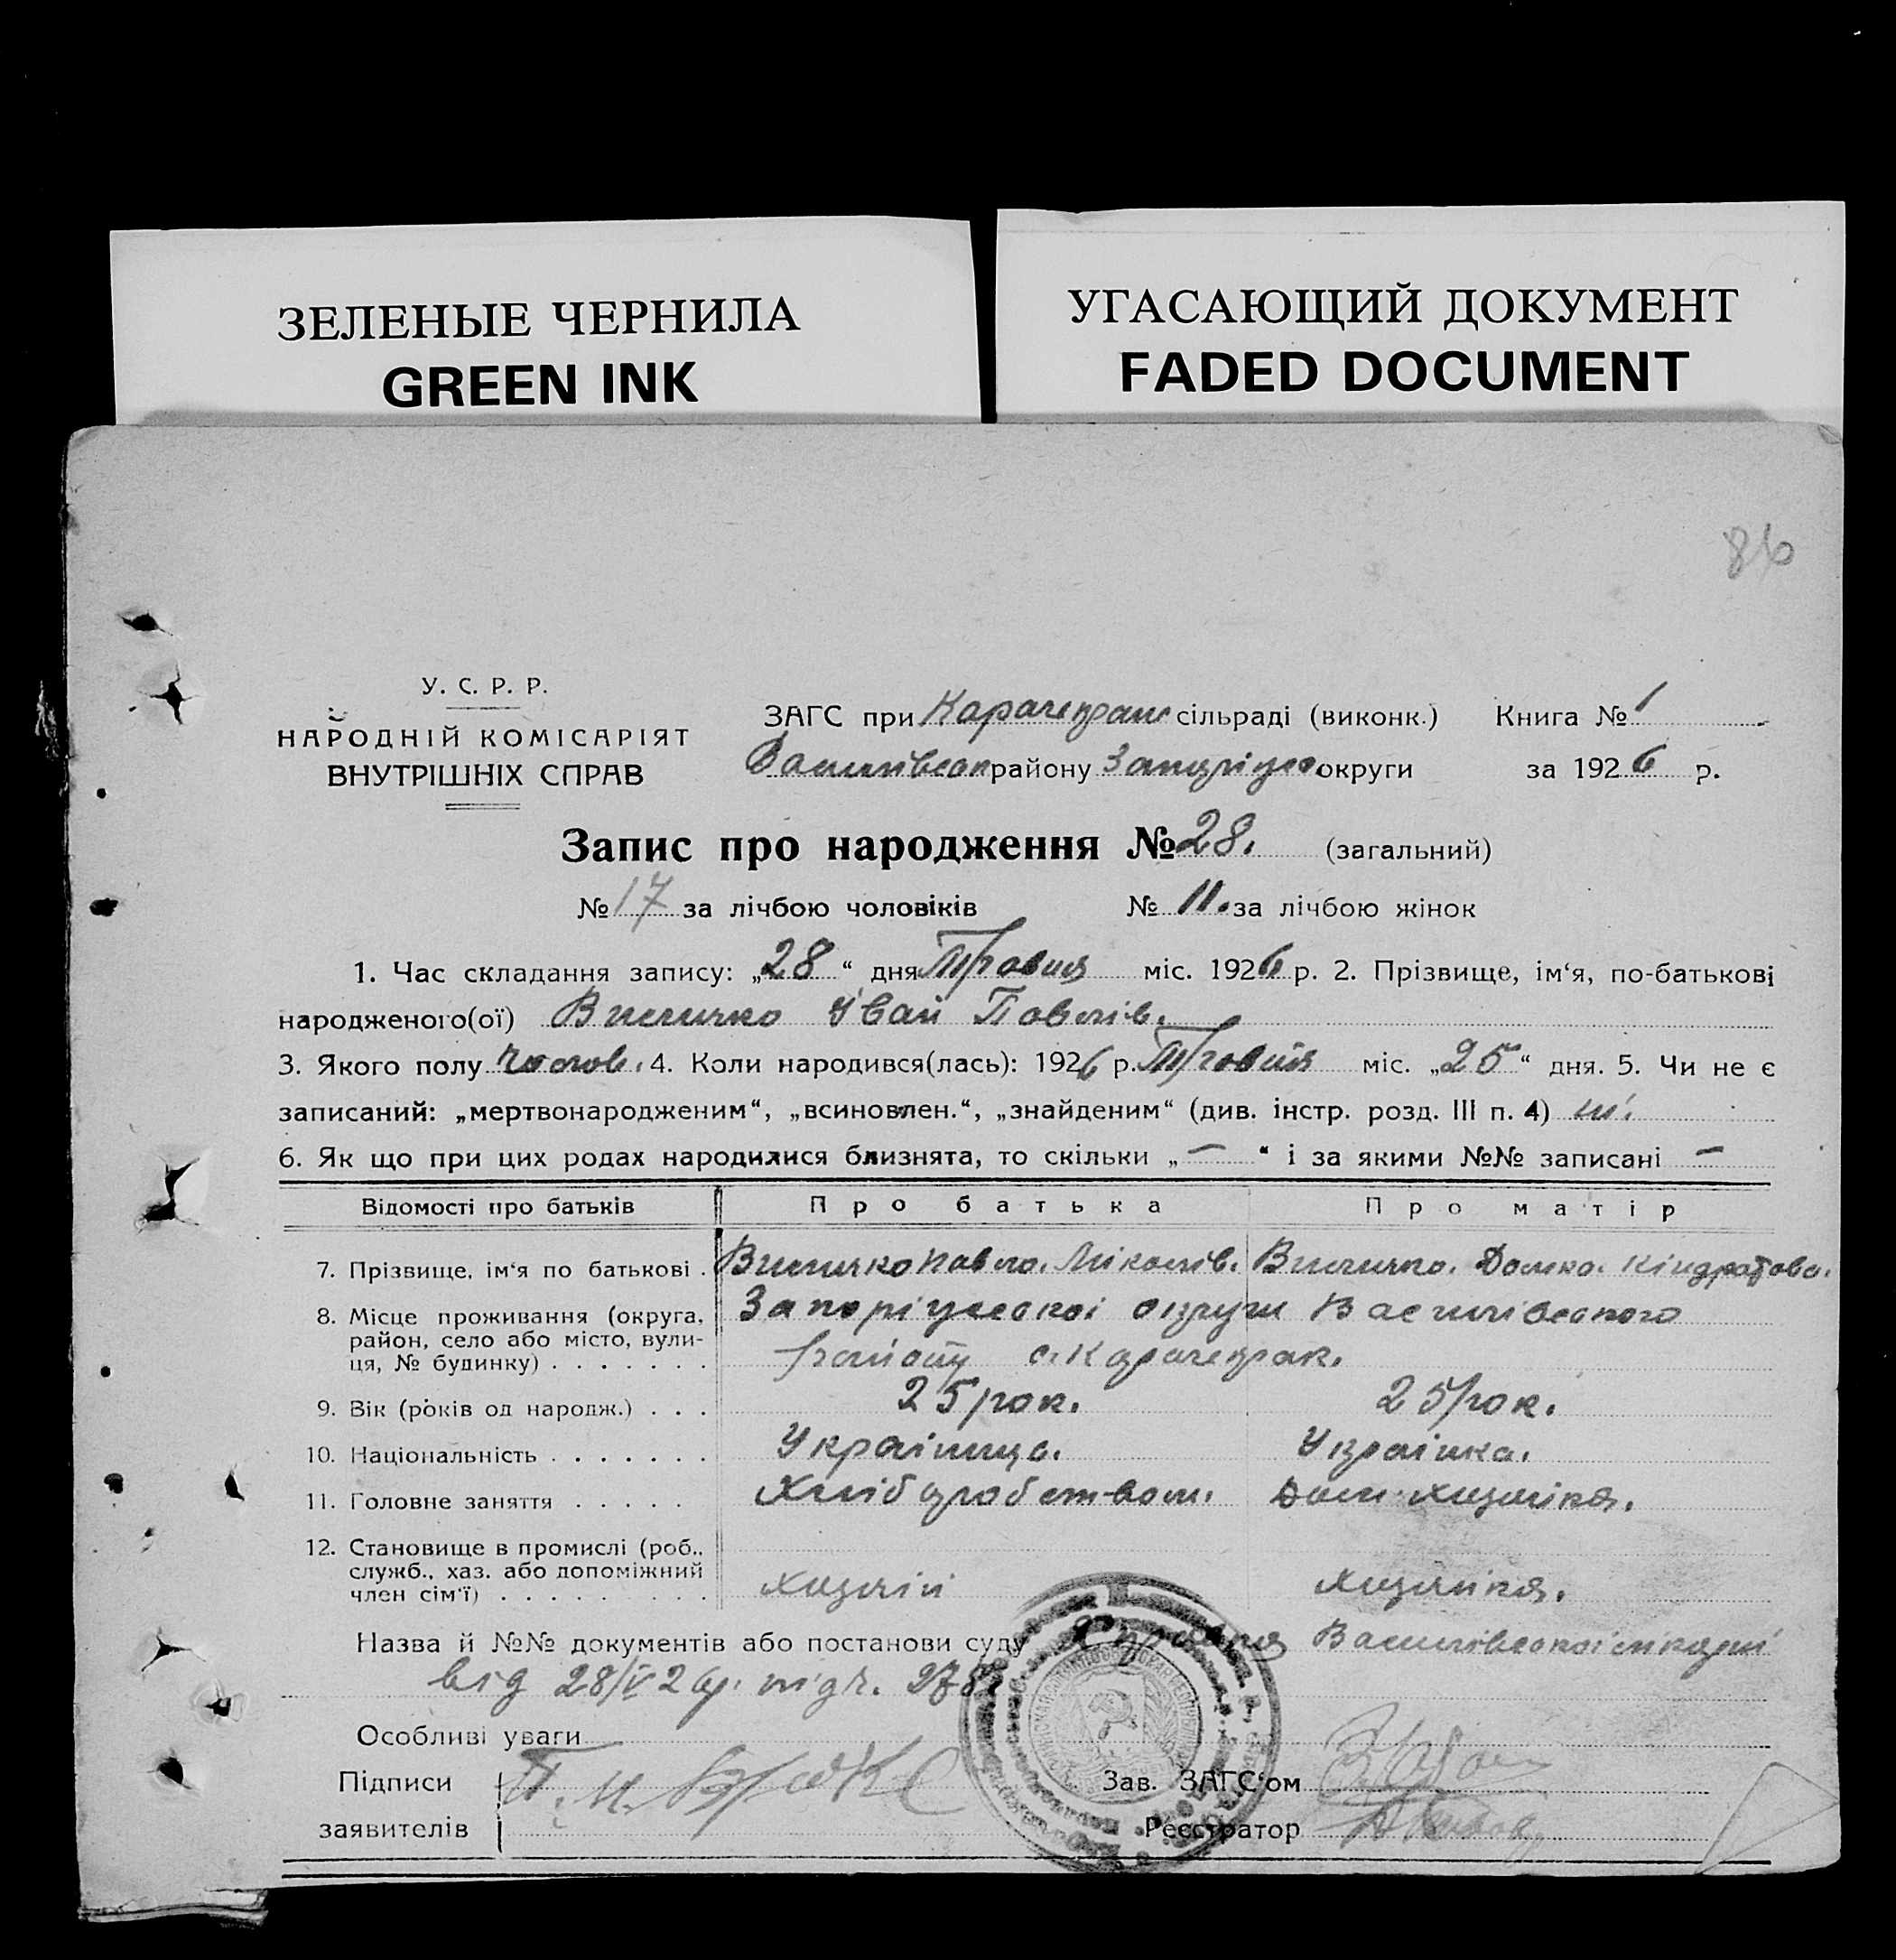 ЗЕЛЕНЫЕ ЧЕРНИЛА
GREEN INK
УГАСАЮЩИЙ ДОКУМЕНТ
FADED DOCUMENT
86
У. С. Р. Р.
НАРОДНІЙ КОМІСАРІЯТ
ВНУТРІШНІХ СПРАВ
ЗАГС при Карачекран сільраді (виконк.) Книга № 1
Василівськ району Запоріжс округи за 1926 р.
Запис про народження № 28. (загальний)
№ 17 за лічбою чоловіків № 11. за лічбою жінок
1. Час складання запису: „28“ дня Травня міс. 1926 р. 2. Прізвище, ім‘я, по-батькові
народженого(ої) Іван Павлів.
3. Якого полу чолов. 4. Коли народився(лась): 1926 р. Травня міс. „25“ дня. 5. Чи не є
записаний: „мертвонародженим“, „всиновлен.“, „знайденим“ (див. інстр. розд. III п. 4) ні.
6. Як що при цих родах народилися близнята, то скільки „—“ і за якими №№ записані —
Відомості про батьків Про батька Про матір
7. Прізвище, ім‘я по батькові . Павло. Міколів. Домка. Кіндратова.
8. Місце проживання (округа, район, село або місто, вули-ця, № будинку) . . . . . . . Запоріжськоі округи Василівського
району с. Карачекрак.
9. Вік (років од народж.) . . . 25 рок. 25 рок.
10. Національність . . . . . . . Украінець. Украінка.
11. Головне заняття . . . . . Хліборобством. Дом. хазяйка.
12. Становище в промислі (роб., служб., хаз. або допоміжний член сім‘ї) . . . . . . . . . хазяїн хазяйка.
Назва й №№ документів або постанови суду Василівськоі
від 28/V 26р.
Особливі уваги
Підписи
заявителів
Зав. ЗАГС‘ом
Реєстратор